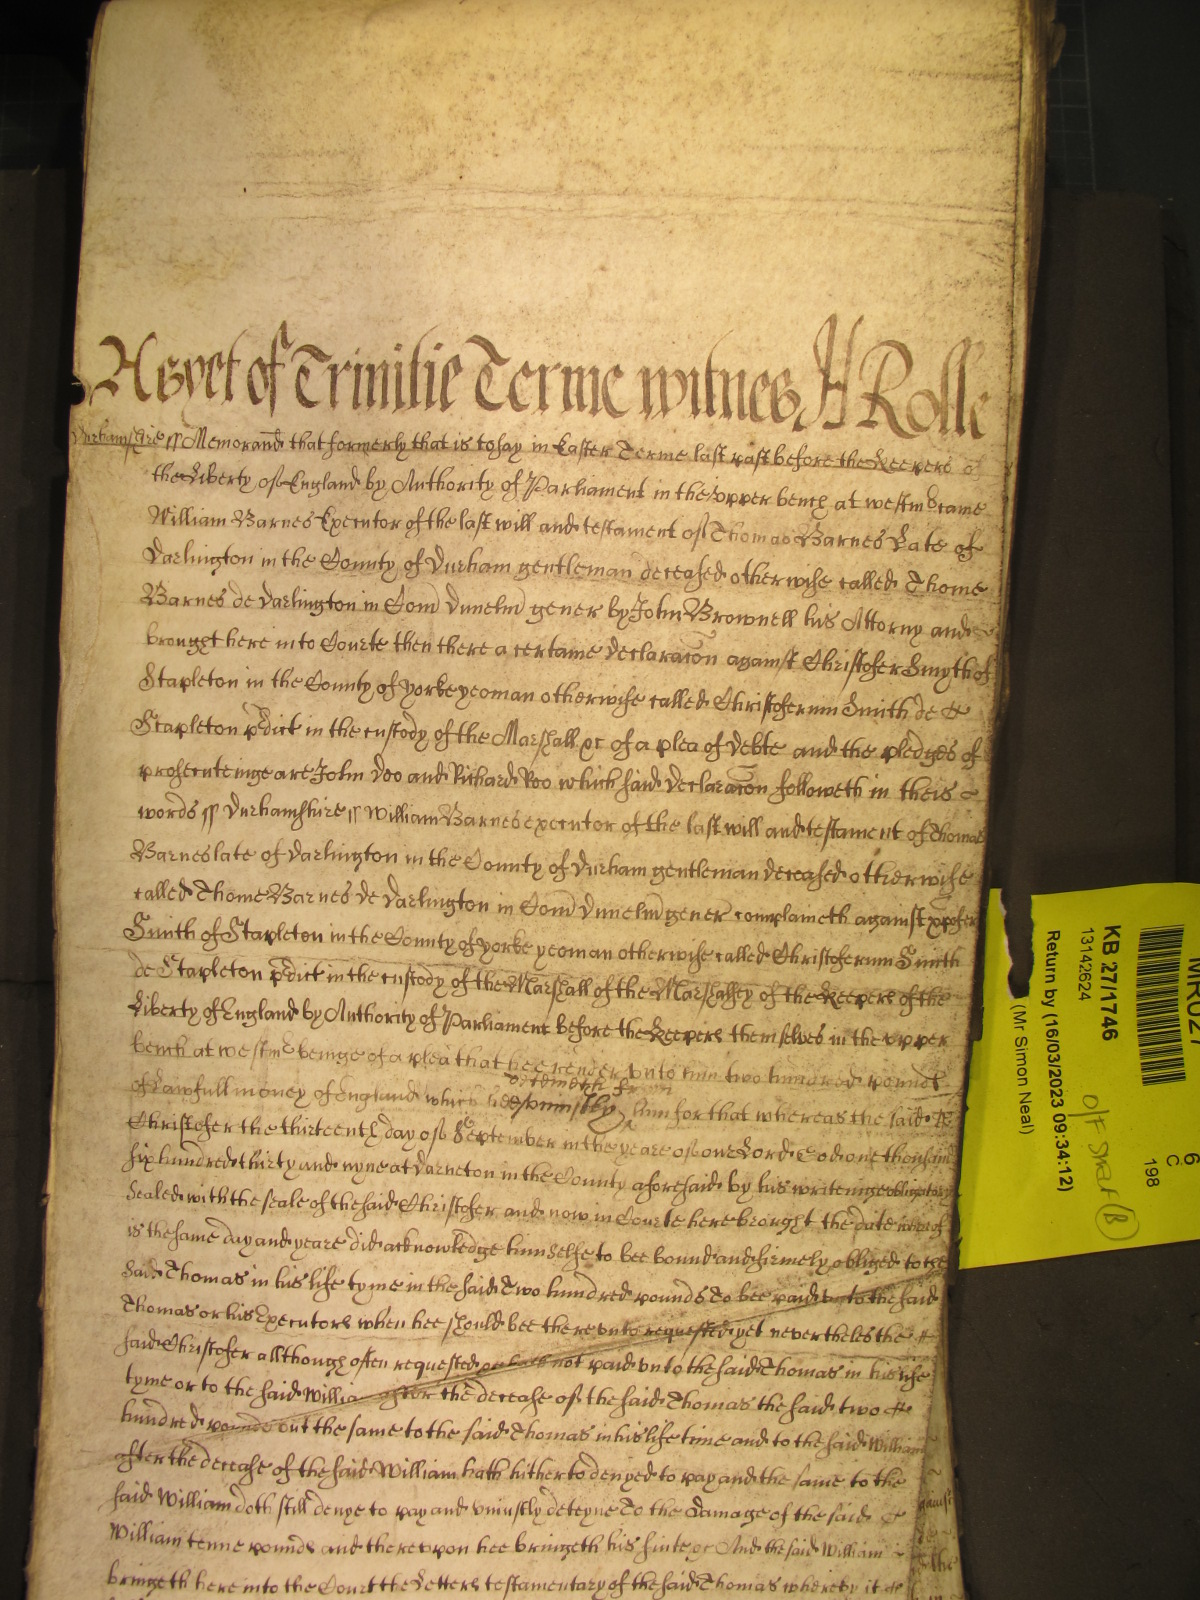 As yet of Trinitie Terme witnes H Rolle
Durhamshire ss Memorand that formerly that is to say in Easter Terme last past before the Keepers of
the Liberty of England by Authority of Parliament in the upper bench at westmr Came
William Barnes Executor of the last will and testament of Thomas Barnes Late of
Darlington in the County of Durham gentleman deceased otherwise called Thome
Barnes de Darlington in Com Dunelm gener by John Brownell his Attorny and
brought here into Courte then there a certaine declaracon against Christofer Smyth of
Stapleton in the County of yorke yeoman otherwise called Christoferum Smith de
Stapleton predict in the custody of the Marshall &c of a plea of debte and the pledges of
prosecuteinge are John Doo and Richard Roo which said declaracon followeth in theis
words ss Durhamshire ss William Barnes executor of the last will and testament of Thomas
Barnes late of Darlington in the County of Durham gentleman deceased otherwise
called Thome Barnes de Darlington in Com Dunelm gener complaineth against xpofer
Smith of Stapleton in the County of yorke yeoman otherwise called Christoferum Smith
de Stapleton predict in the custody of the Marshall of the Marshalsey of the Keepers of the
Liberty of England by Authority of Parliament before the Keepers themselves in the upper
bench at westmr beinge of a plea that hee render unto him two hundred pounds
of Lawfull money of England which hee oweth & uniustly deteineth from him for that whereas the said
Christofer the thirteenth day of September in the yeare of our Lord God one thousand
six hundred thirty and nyne at Darneton in the County aforesaid by his writeinge obligatory
Sealed with the seale of the said Christofer and now in Courte here brought the date whereof
is the same day and yeare did acknowledge himselfe to bee bound and firmely obliged to the
Said Thomas in his life tyme in the said Two hundred pounds To bee paid unto the said
Thomas or his Executors when hee should bee thereunto requested yet nevertheles the
said Christofer allthough often requested hath not paid unto the said Thomas in his life
tyme or to the said William after the decease of the said Thomas the said two
hundred pounds but the same to the said Thomas in his life time and to the said William
after the decease of the said William hath hitherto denyed to pay and the same to the
said William doth still denye to pay and uniustly deteyne To the damage of the said
William tenne pounds and thereupon hee bringeth his suite &c And the said William
bringeth here into the Court the Letters testamentary of the said Thomas whereby it
KB 27/1746
13142624
Return by (16/03/2023 09:34:12)
(Mr Simon Neal)
MR027
6
C
198